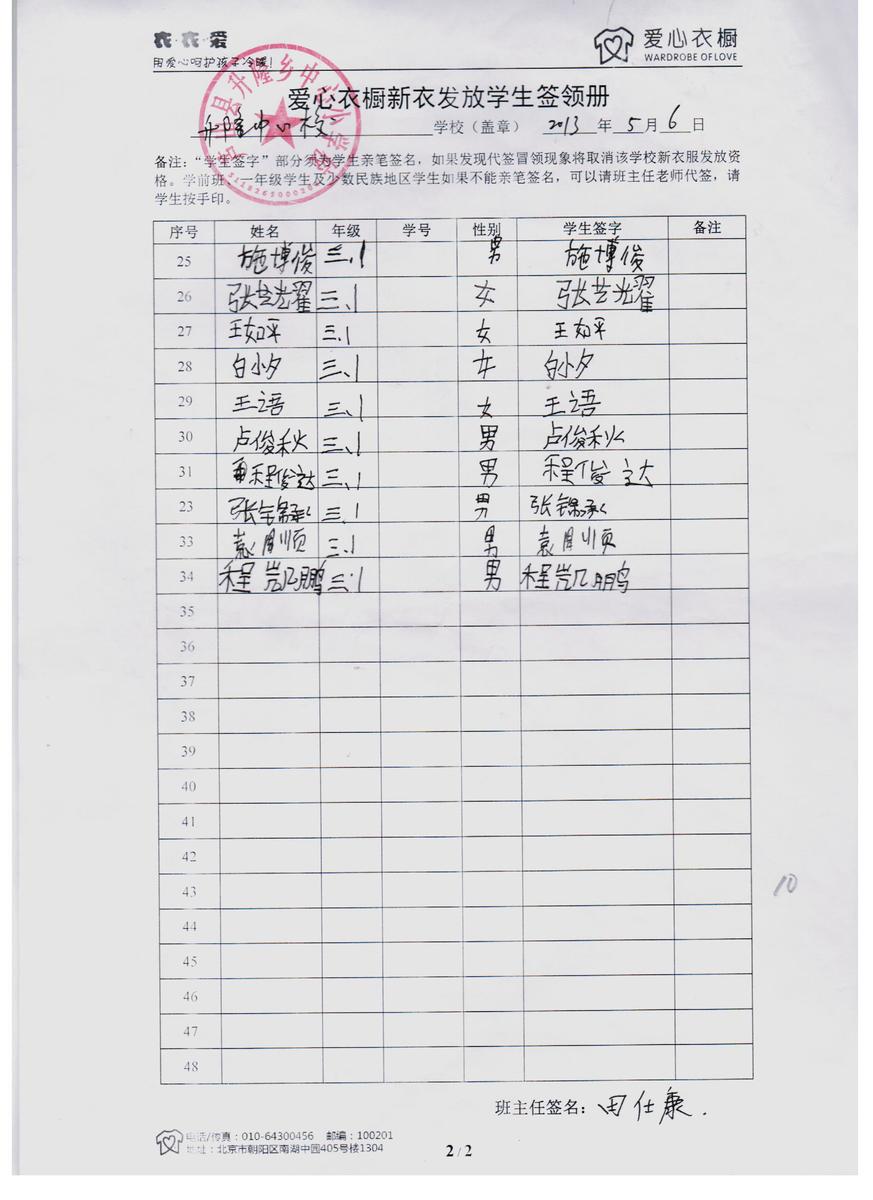 衣·衣·爱
用爱心呵护孩子冷暖！
爱心衣橱
WARDROBE OF LOVE
县升隆乡中心小学校
爱心衣橱新衣发放学生签领册
升隆中心校 学校（盖章） 2013 年 5 月 6 日
备注：“学生签字”部分须为学生亲笔签名，如果发现代签冒领现象将取消该学校新衣服发放资
格。学前班、一年级学生及少数民族地区学生如果不能亲笔签名，可以请班主任老师代签，请
学生按手印。
序号 姓名 年级 学号 性别 学生签字 备注
25 施博俊 三.1 男 施博俊
26 张芸光翟 三、1 女 张芸光翟
27 王如平 三.1 女 王如平
28 白小夕 三、1 女 白小夕
29 王语 三、1 女 王语
30 卢俊秋 三、1 男 卢俊秋
31 程俊达 三、1 男 程俊达
23 张锦承 三.1 男 张锦承
33 袁周顺 三.1 男 袁周顺
34 程凯鹏 三.1 男 程凯鹏
35
36
37
38
39
40
41
42
43
10
44
45
46
47
48
班主任签名：田仕康.
电话/传真：010-64300456 邮编：100201
地址：北京市朝阳区南湖中园405号楼1304
2 / 2